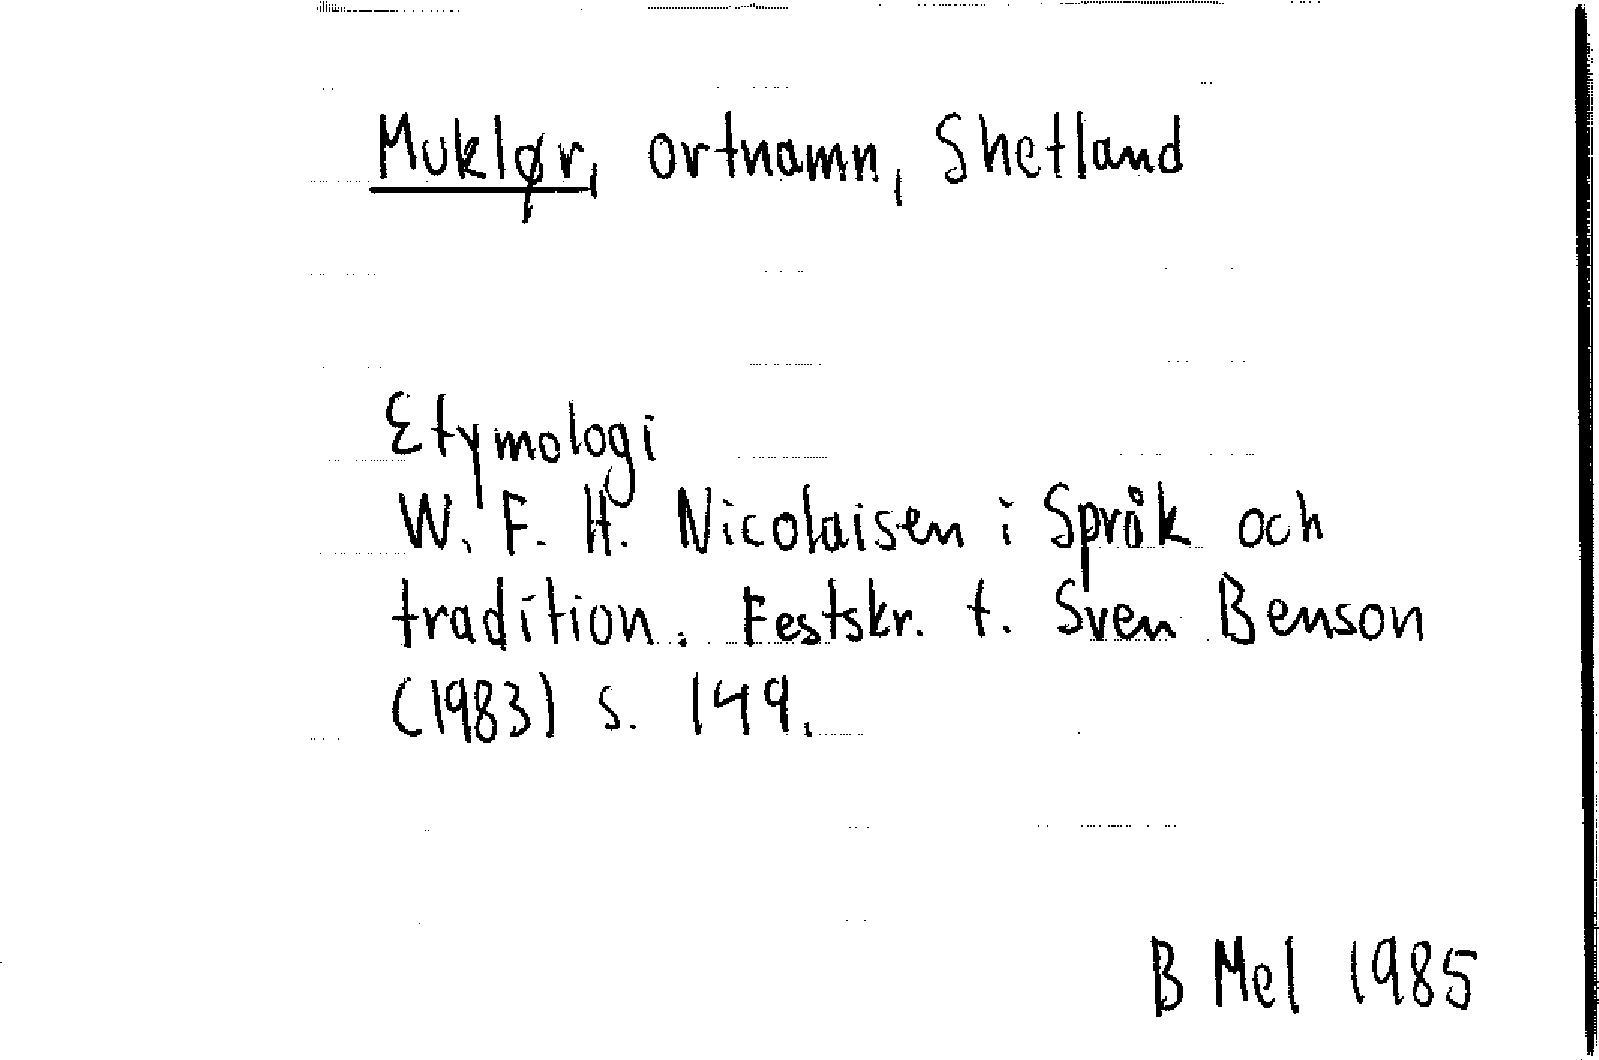 Muklør, ortnamn, Shetland
Etymologi
W. F. H. Nicolaisen i Språk och
tradition. Festskr. t. Sven Benson
(1983) s. 149.
B Mel 1985